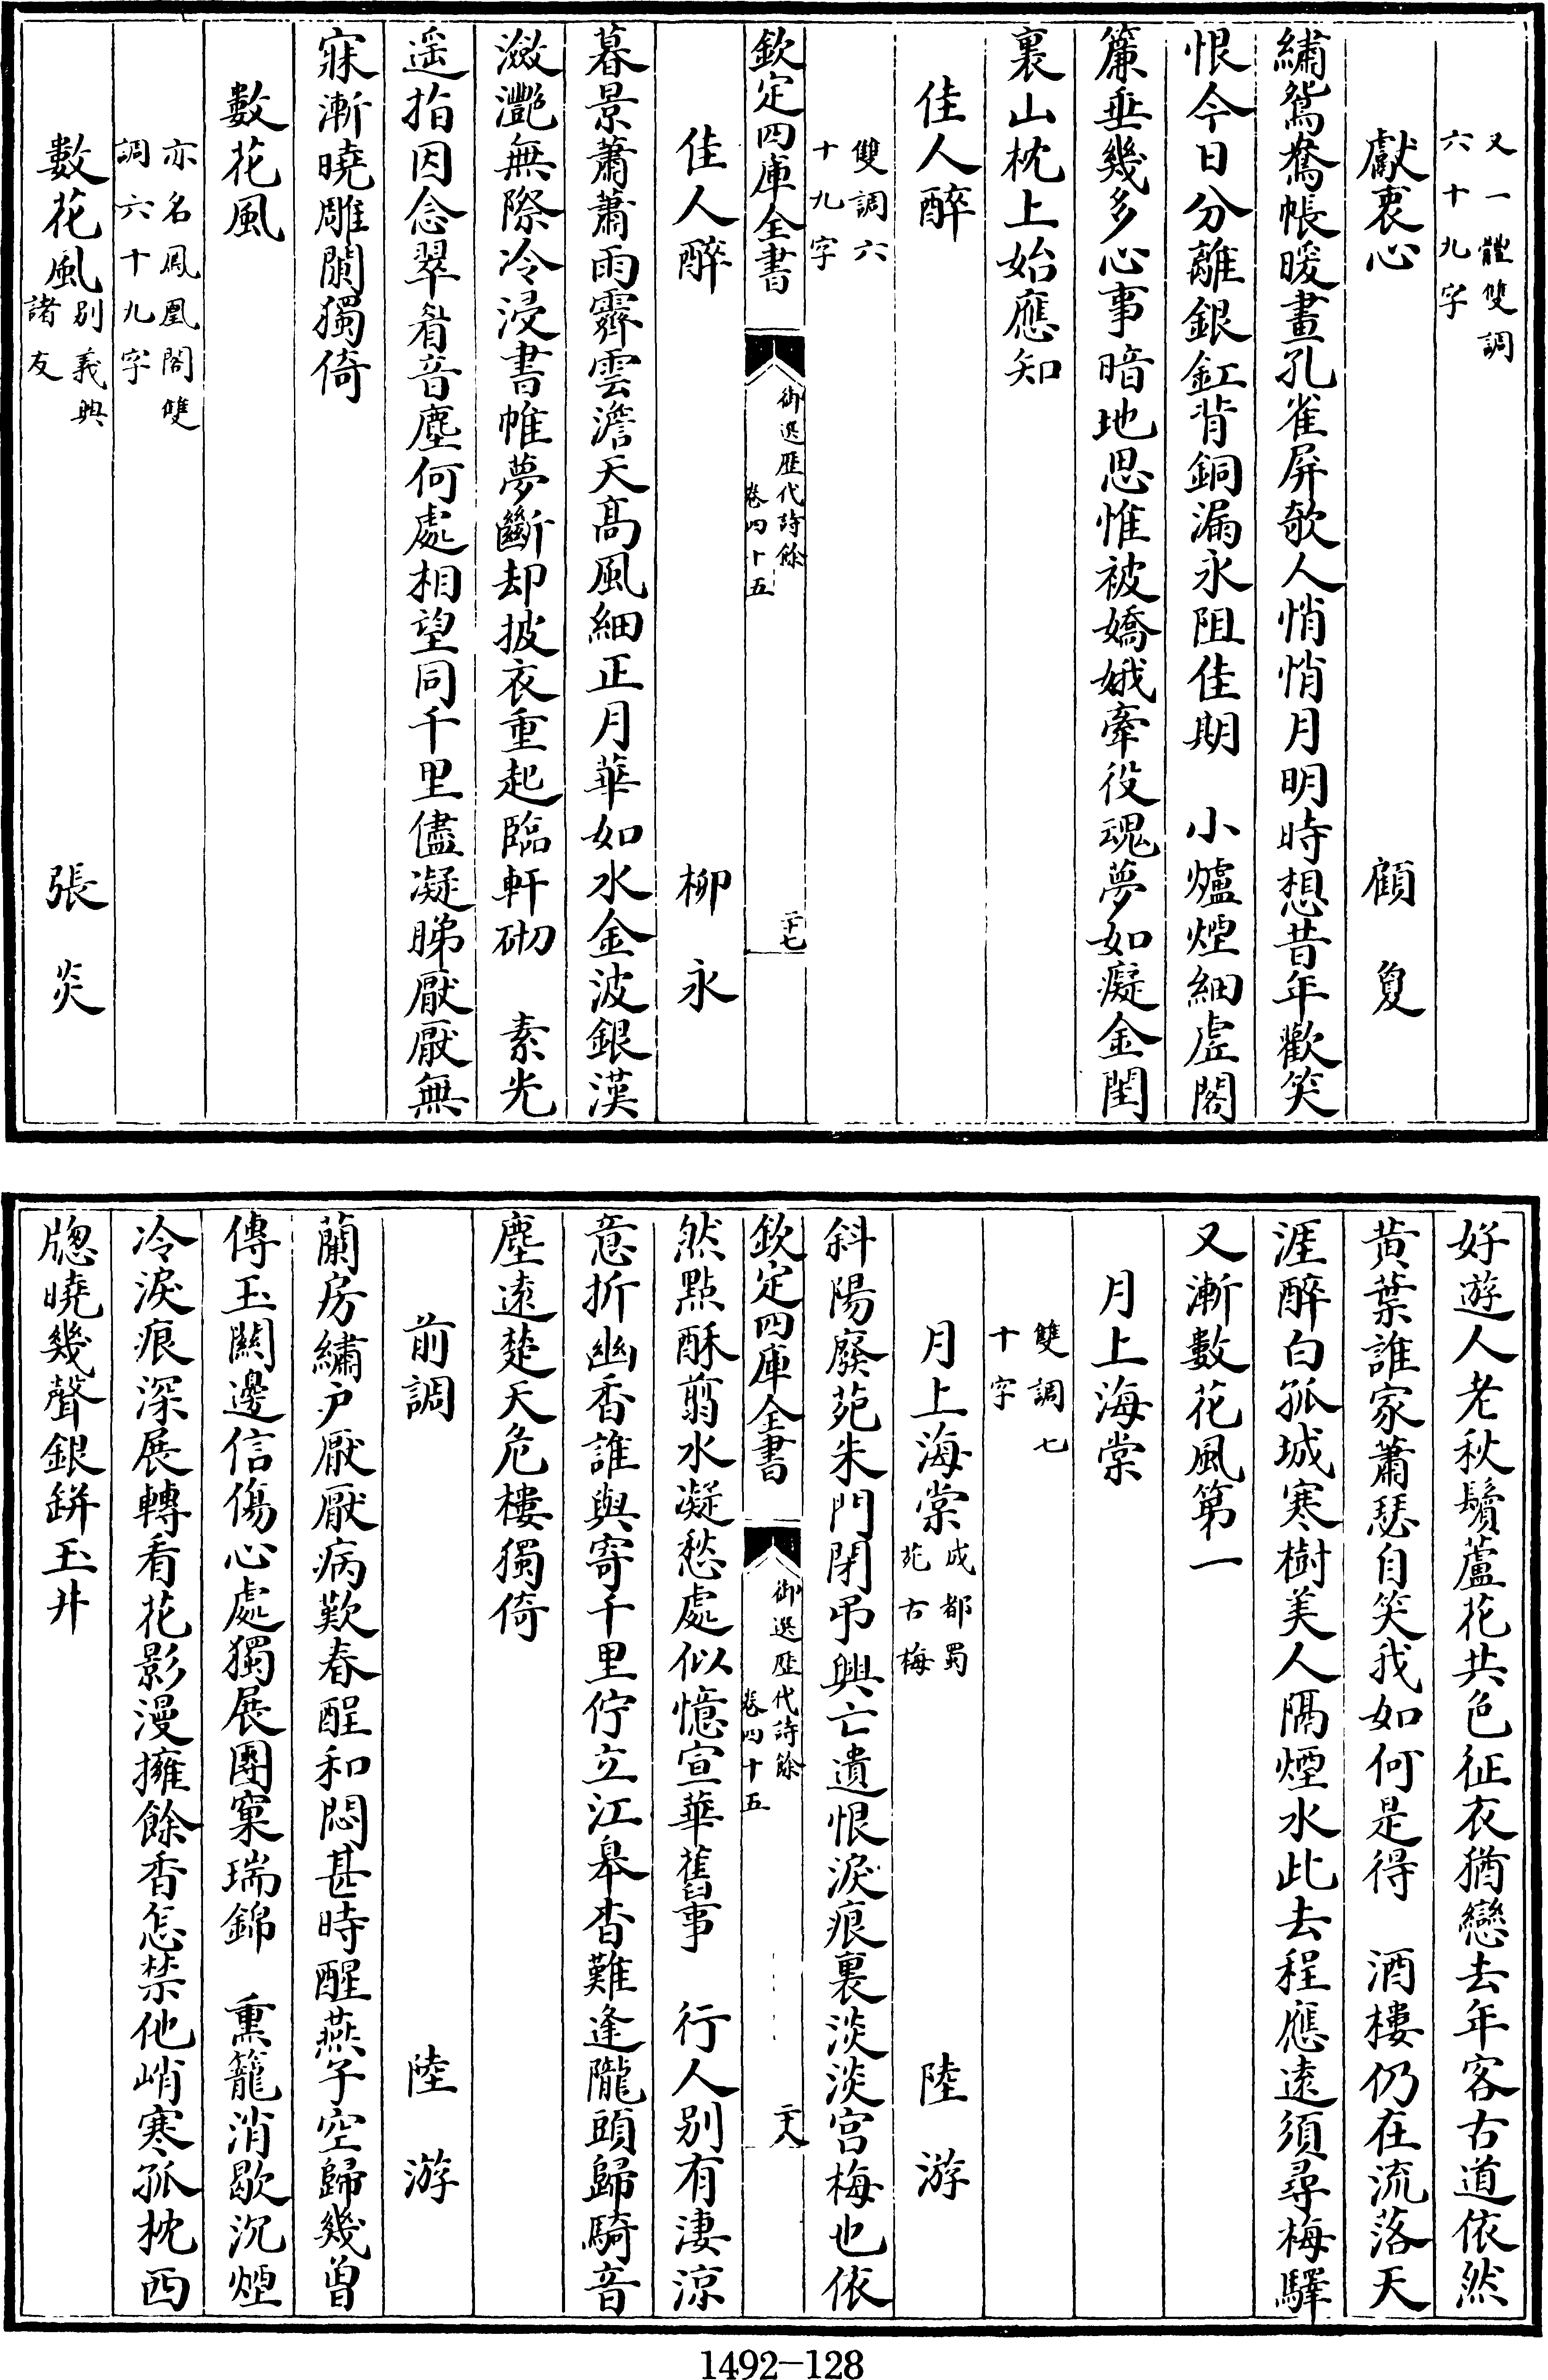 又一體雙調
六十九字
獻衷心　顧夐
繡鴛鴦帳暖畫孔雀屏欹人悄悄月明時想昔年歡笑
恨今日分離銀釭背銅漏永阻佳期　小爐煙細虛閣
簾垂幾多心事暗地思惟被嬌娥牽役魂夢如癡金閨
裏山枕上始應知
佳人醉
雙調六
十九字
欽定四庫全書
御選歷代詩餘
卷四十五
二十七
佳人醉　柳永
暮景蕭蕭雨霽雲澹天高風細正月華如水金波銀漢
瀲灧無際冷浸書帷夢斷却披衣重起臨軒砌　素光
遥指因念翠眉音塵何處相望同千里儘凝睇厭厭無
寐漸曉雕闌獨倚
數花風
亦名鳳凰閣雙
調六十九字
數花風別義興
諸友
張炎
好遊人老秋鬢蘆花共色征衣猶戀去年客古道依然
黄葉誰家蕭瑟自笑我如何是得　酒樓仍在流落天
涯醉白孤城寒樹美人隔煙水此去程應遠須尋梅驛
又漸數花風第一
月上海棠
雙調七
十字
月上海棠成都蜀
苑古梅
陸游
斜陽廢苑朱門閉弔興亡遺恨淚痕裏淡淡宫梅也依
欽定四庫全書
御選歷代詩餘
卷四十五
二十八
然點酥翦水凝愁處似憶宣華舊事　行人别有淒涼
意折幽香誰與寄千里佇立江皋杳難逢隴頭歸騎音
塵遠楚天危樓獨倚
前調　陸游
蘭房繡户厭厭病歎春酲和悶甚時醒燕子空歸幾曽
傳玉關邊信傷心處獨展團窠瑞錦　熏籠消歇沉煙
冷淚痕深展轉看花影漫擁餘香怎禁他峭寒孤枕西
牕曉幾聲銀缾玉井
1492-128